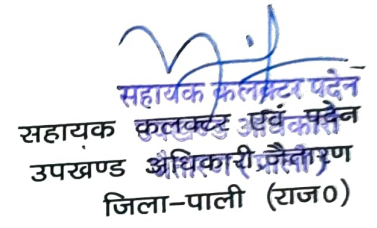 सहायक कलक्टर पदेन
सहायक कलक्टर एवं पदेन
उपखण्ड अधिकारी जैतारण
जिला-पाली (राज०)